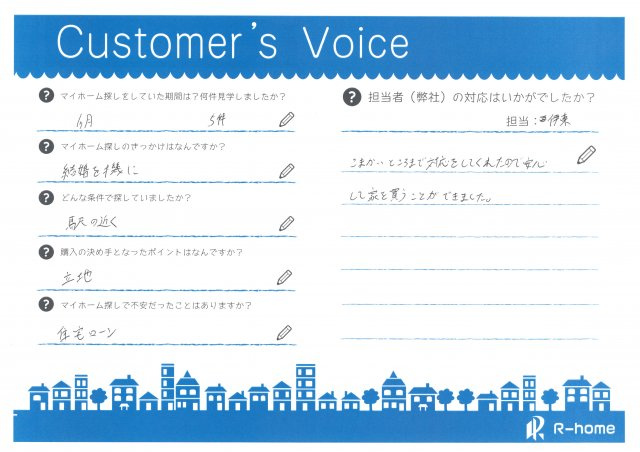 Customer's Voice
マイホーム探しをしていた期間は？何件見学しましたか？
ヶ月 5件
マイホーム探しのきっかけはなんですか？
結婚を機に
どんな条件で探していましたか？
駅の近く
購入の決め手となったポイントはなんですか？
立地
マイホーム探しで不安だったことはありますか？
住宅ローン
担当者（弊社）の対応はいかがでしたか？
担当：伊東
こまかいところまで対応をしてくれたので安心
して家を買うことができました。
R-home